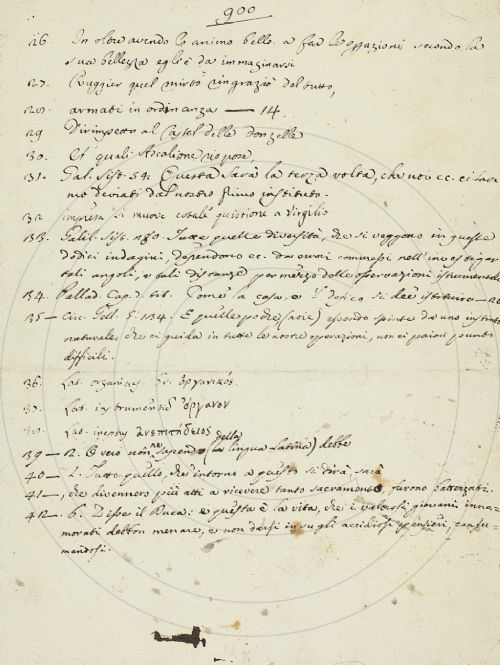 900
26. In oltre avendo lo animo bello a far le operazioni secondo la
sua bellezza egli è da immaginarsi
27. Ruggier quel mirto ringraziò del tutto,
28. armati in ordinanza — 14.
29 Dirimpetto al Castel delle donzelle
30. Et quali Ascalione rispose,
31. Gal. Sist. 54. Questa sarà la terza volta, che noi cc. ci siamo
deviati dal nostro primo instituto.
32 impresa si muove cotale quistione a Virgilio
133. Galil. Sis. 180. Tutte quelle diversità, che si veggono in queste
dodici indagini, dependono ec. da errori commessi nell'investigar
tali angoli, e tali distanze per mezzo delle osservazioni istrumentali
134. Pallad. Cap. 6. tit. Come la casa, e l'
35 — Circ. Gell. 5. 134. E quelle poche (noie) essendo spinte da uno instinto
naturale, che ci guida in tutte le nostre operazioni, non ci paion punto
difficili.
36. Lat. organicus Gr. ὀργανικός.
37. Lat. instrumentũ ὄργανον
38. Lat. ineptus ἀνεπιτήδειος
39 — R. O vero non ne sapendo (della lingua Latina) debbe
40 — 1. Tutto quello, che intorno a questo si dirà, sarà
41 —, che divennero più atti a ricevere tanto sacramento, furono battezzati.
42 — 6. Disse il Duca: e questa è la vita, che i valorosi giovani innamorati
debbon menare, e non darsi in su gli accidiosi pensieri, consumandosi.